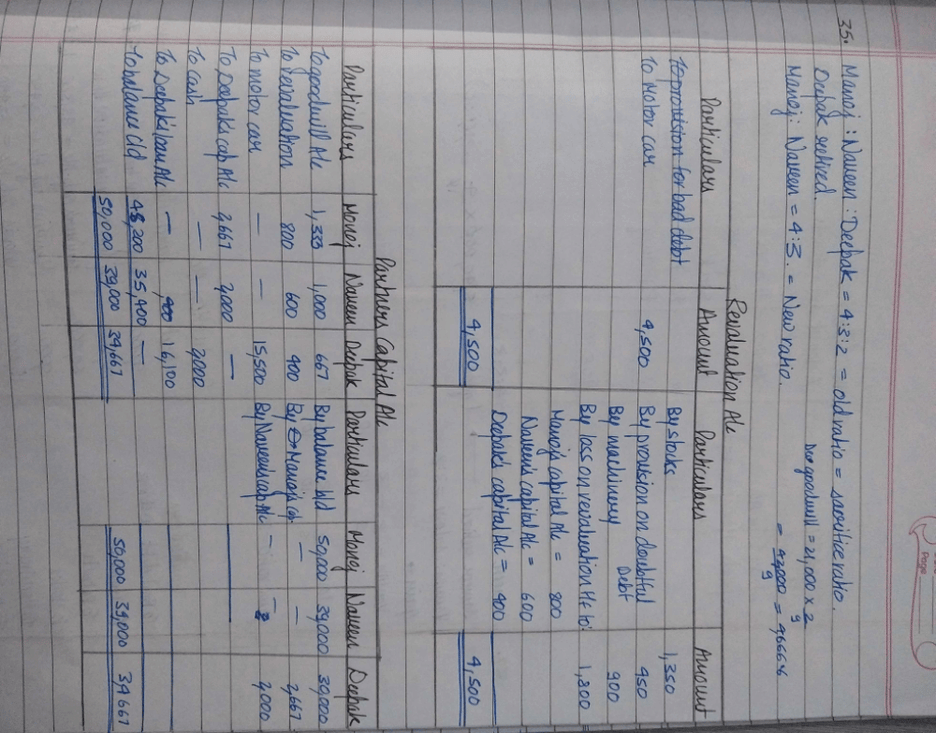 Page
35. Manoj : Naveen : Deepak = 4:3:2 = old ratio = sacrifice ratio.
Deepak retired. goodwill = 21,000 x 2/9
Manoj : Naveen = 4:3. = New ratio. = 42,000/9 = 4666.6
Revaluation A/c
Particulars Amount Particulars Amount
To provision for bad debt By stocks 1,350
To Motor car 4,500 By provision on doubtful Debt 450
By machinery 900
By loss on revaluation trf to: 1,800
Manoj capital A/c = 800
Naveen's capital A/c = 600
Deepak's capital A/c = 400
4,500 4,500
Partners Capital A/c
Particulars Manoj Naveen Deepak Particulars Manoj Naveen Deepak
To goodwill A/c 1,333 1,000 667 By balance b/d 50,000 39,000 30,000
To revaluation 800 600 400 By Manoj's cap — — 2,667
To motor car — — 15,500 By Naveen's cap A/c — — 2,000
To Deepak's cap A/c 2,667 2,000 —
To cash — — 2000
To Deepak's loan A/c — 16,100
To balance c/d 45,200 35,400 —
50,000 39,000 34,667 50,000 39,000 34,667